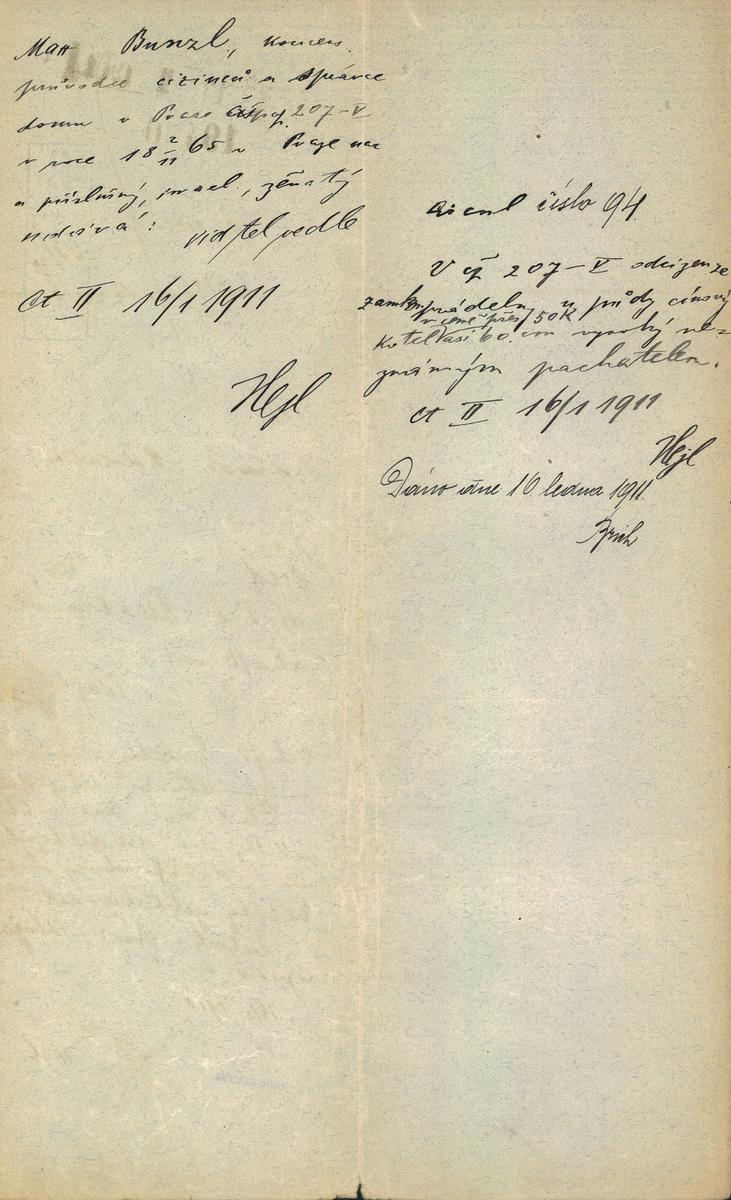 Max Bunzl, konces.
průvodce cizinců a správce
domu v Praze čp. 207-V
v roce 18 2/11 65 v Praze nar.
a příslušný, israel., ženatý
udává: viz tel vedle
Ct II 16/1 1911
Hejl
číslo 94
V čp 207-V odcizen ze
zamkn. prádelny u půdy cínový
v ceně přes 50K
kotel asi 60 cm vysoký ne-
známým pachatelem.
Ct II 16/1 1911
Hejl
Dáno dne 16. ledna 1911.